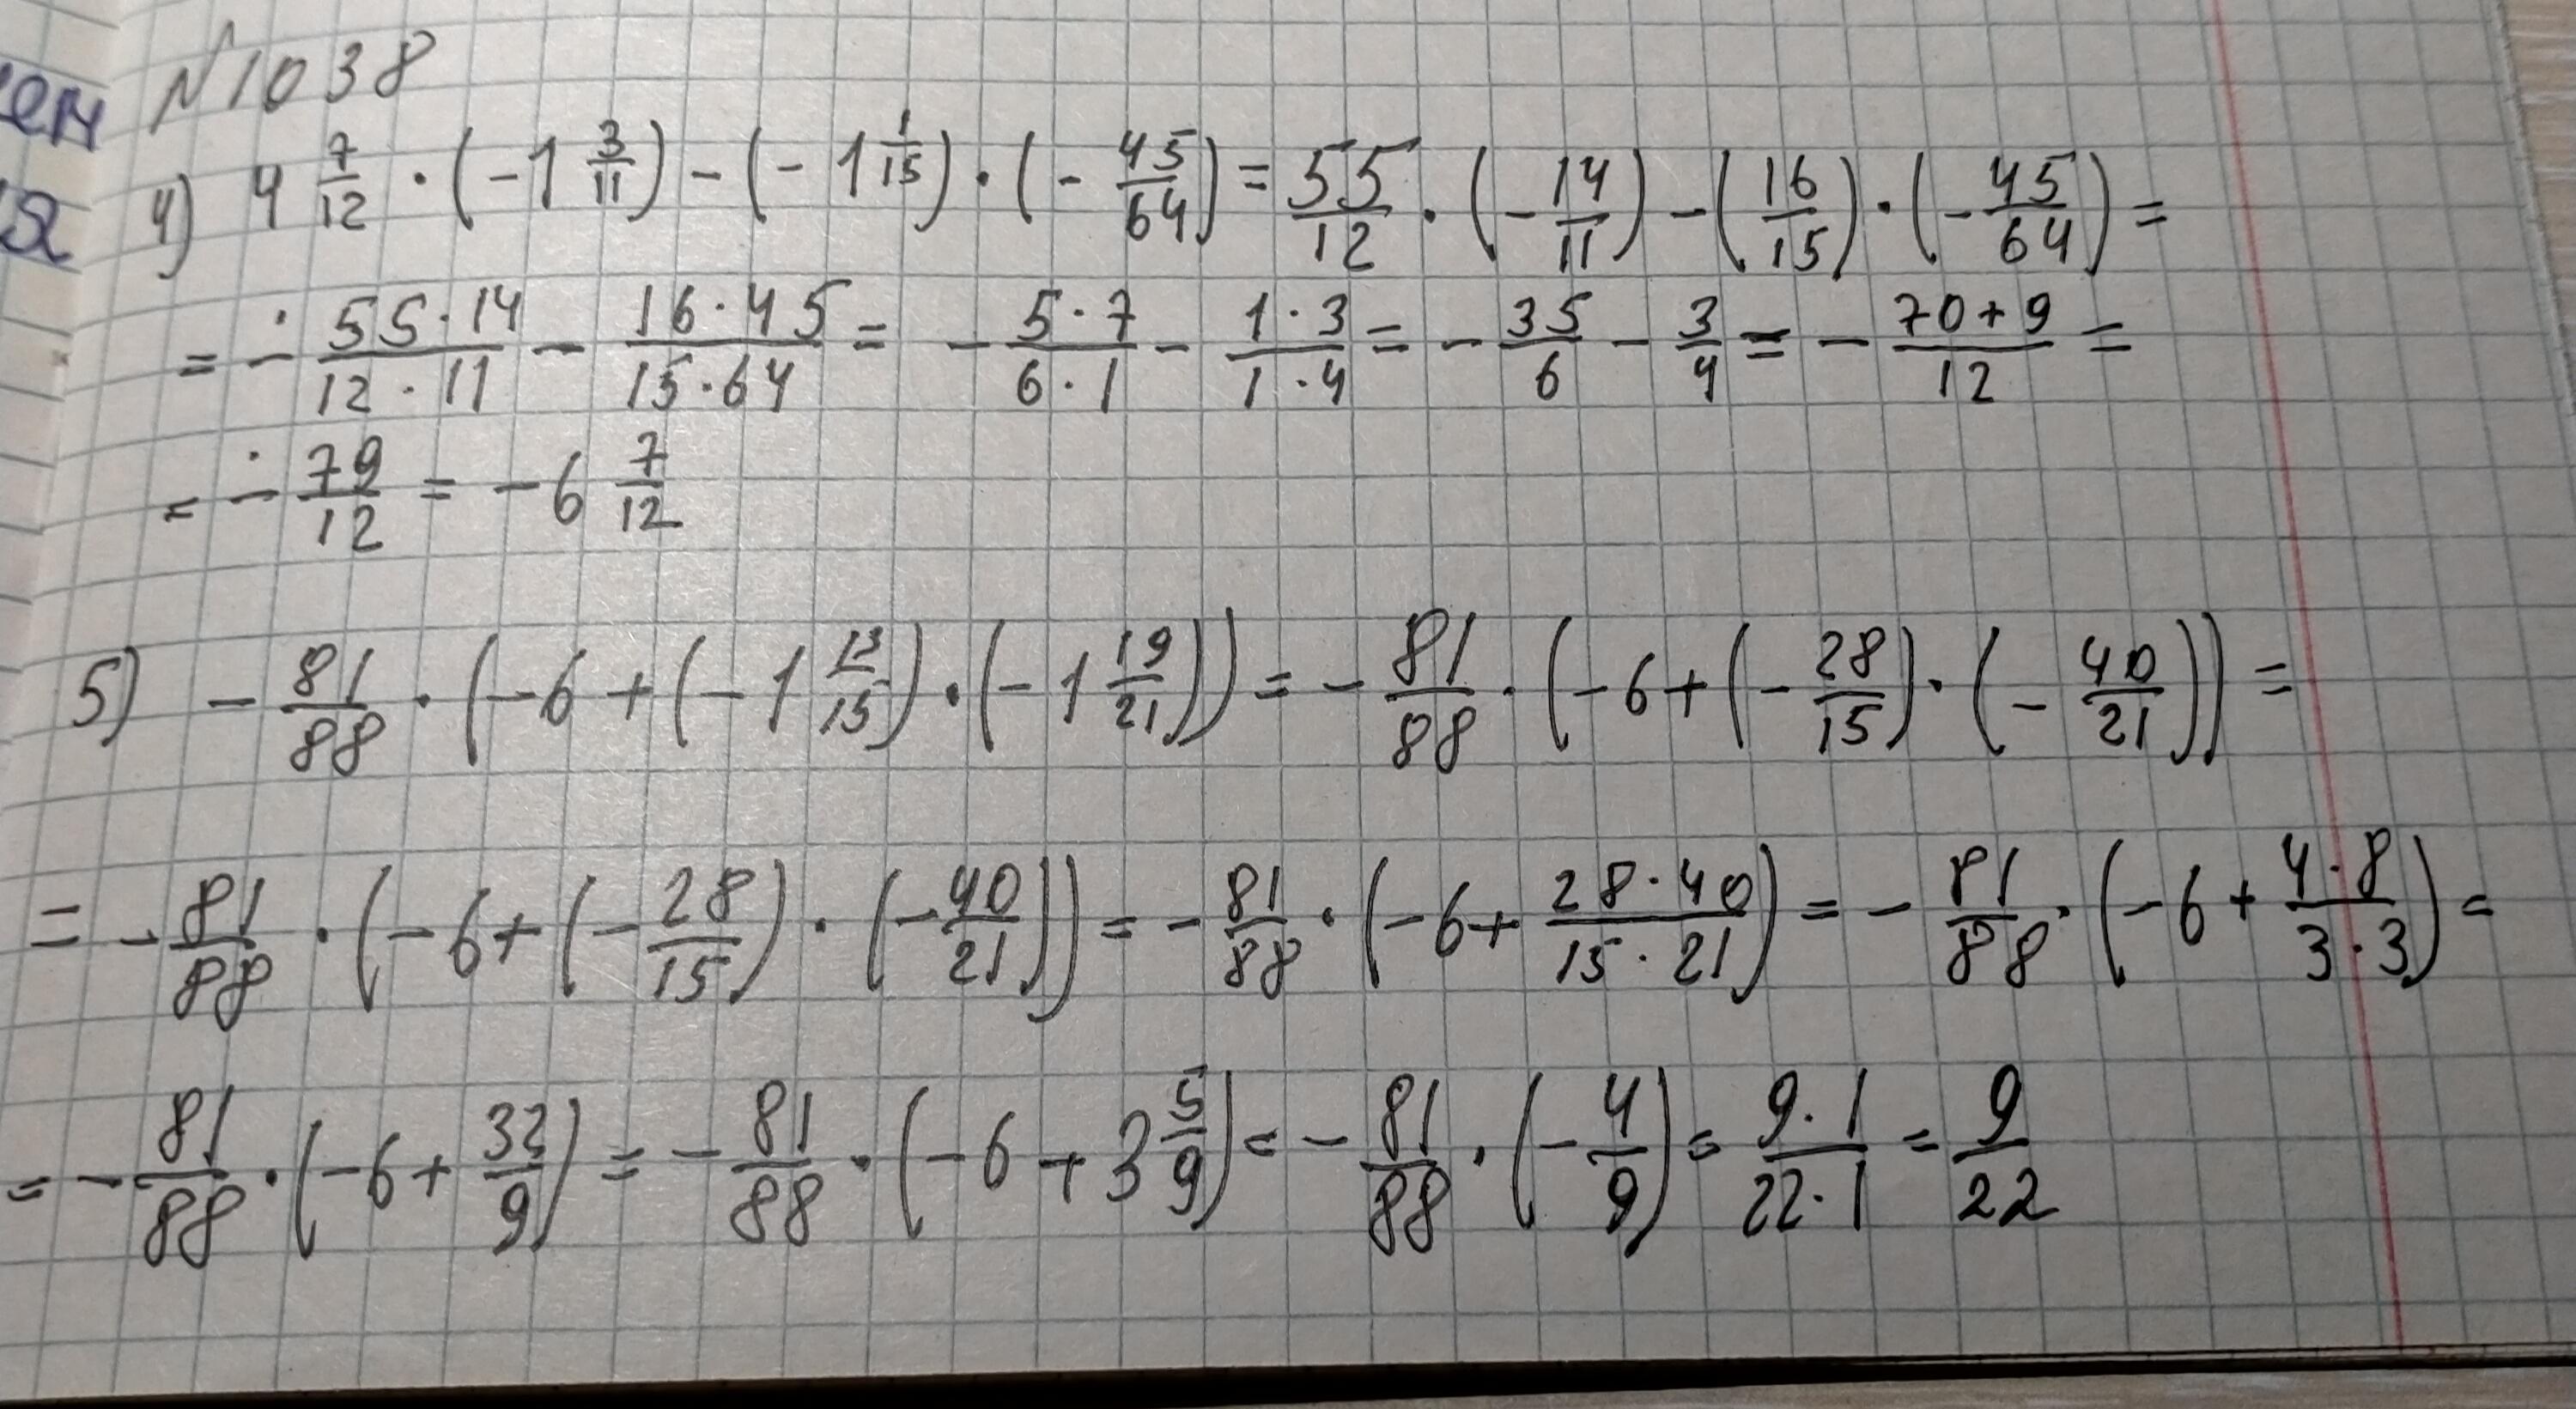 ем
я
№1038
4) 4 7/12 · (-1 3/11) - (-1 1/15) · (- 45/64) = 55/12 · (- 14/11) - (16/15) · (- 45/64) =
= - 55·14/12·11 - 16·45/15·64 = - 5·7/6·1 - 1·3/1·4 = - 35/6 - 3/4 = - 70+9/12 =
= - 79/12 = - 6 7/12
5) - 81/88 · (-6 + (-1 13/15) · (-1 19/21)) = - 81/88 · (-6 + (- 28/15) · (- 40/21)) =
= - 81/88 · (-6 + (- 28/15) · (- 40/21)) = - 81/88 · (-6 + 28·40/15·21) = - 81/88 · (-6 + 4·8/3·3) =
= - 81/88 · (-6 + 32/9) = - 81/88 · (-6 + 3 5/9) = - 81/88 · (- 4/9) = 9·1/22·1 = 9/22